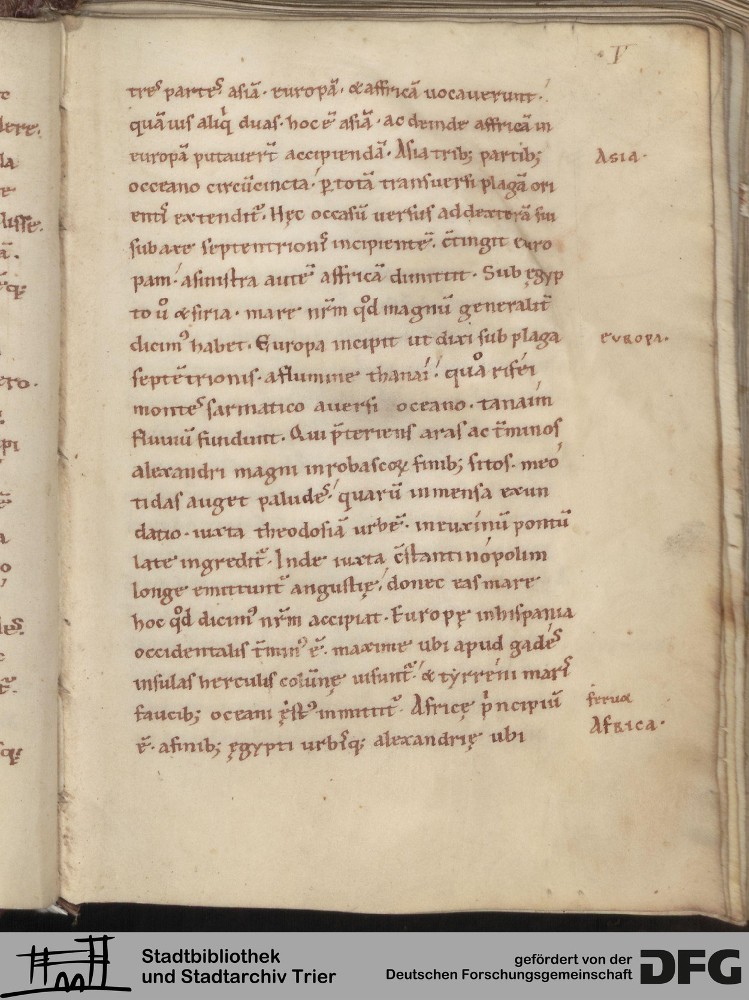 V
tres partes asiā · europā · & affricā uocauerunt ·
quāuis aliq̇ duas · hoc ē asiā · ac deinde affricā in
europā putauerť accipiendā · Asia trib; partib;
occeano circūcincta · ꝑ totā transuersi plagā ori
entis extendit᷑ · Hęc occasū uersus ad dexterā sui
sub axe septentrionis incipiente · c̄tingit euro
pam · a sinistra autē affricā dimittit · Sub ęgyp
to ů & siria · mare nr̄m qđ magnū generalit᷑
dicimꝰ habet · Europa incipit ut dixi sub plaga
septētrionis · a flumine thanai · quo rifei
montes sarmatico auersi oceano · tanaim
fluuiū fundunt · Qui p̄teriens aras ac t̄minos
alexandri magni in robascoꝝ finib; sitos · meo
tidas auget paludes · quarū inmensa exun
datio · iuxta theodosiā urbē · in euxinū pontū
late ingredit᷑ · Inde iuxta c̄stantinopolim
longe emittunt᷑ angustię · donec eas mare
hoc qđ dicimꝰ nr̄m accipiat · Europę in hispania
occidentalis t̄minꝰ ē · maxime ubi apud gades
insulas herculis colūnę uisunt᷑ · & tyrreni maris
faucib; oceani ęstꝰ inmittit᷑ · Africę p̍ncipiū
ē · a finib; ęgypti urbisq; alexandrię ubi
Asia ·
europa ·
Africa ·
Stadtbibliothek
und Stadtarchiv Trier
gefördert von der
Deutschen Forschungsgemeinschaft
DFG